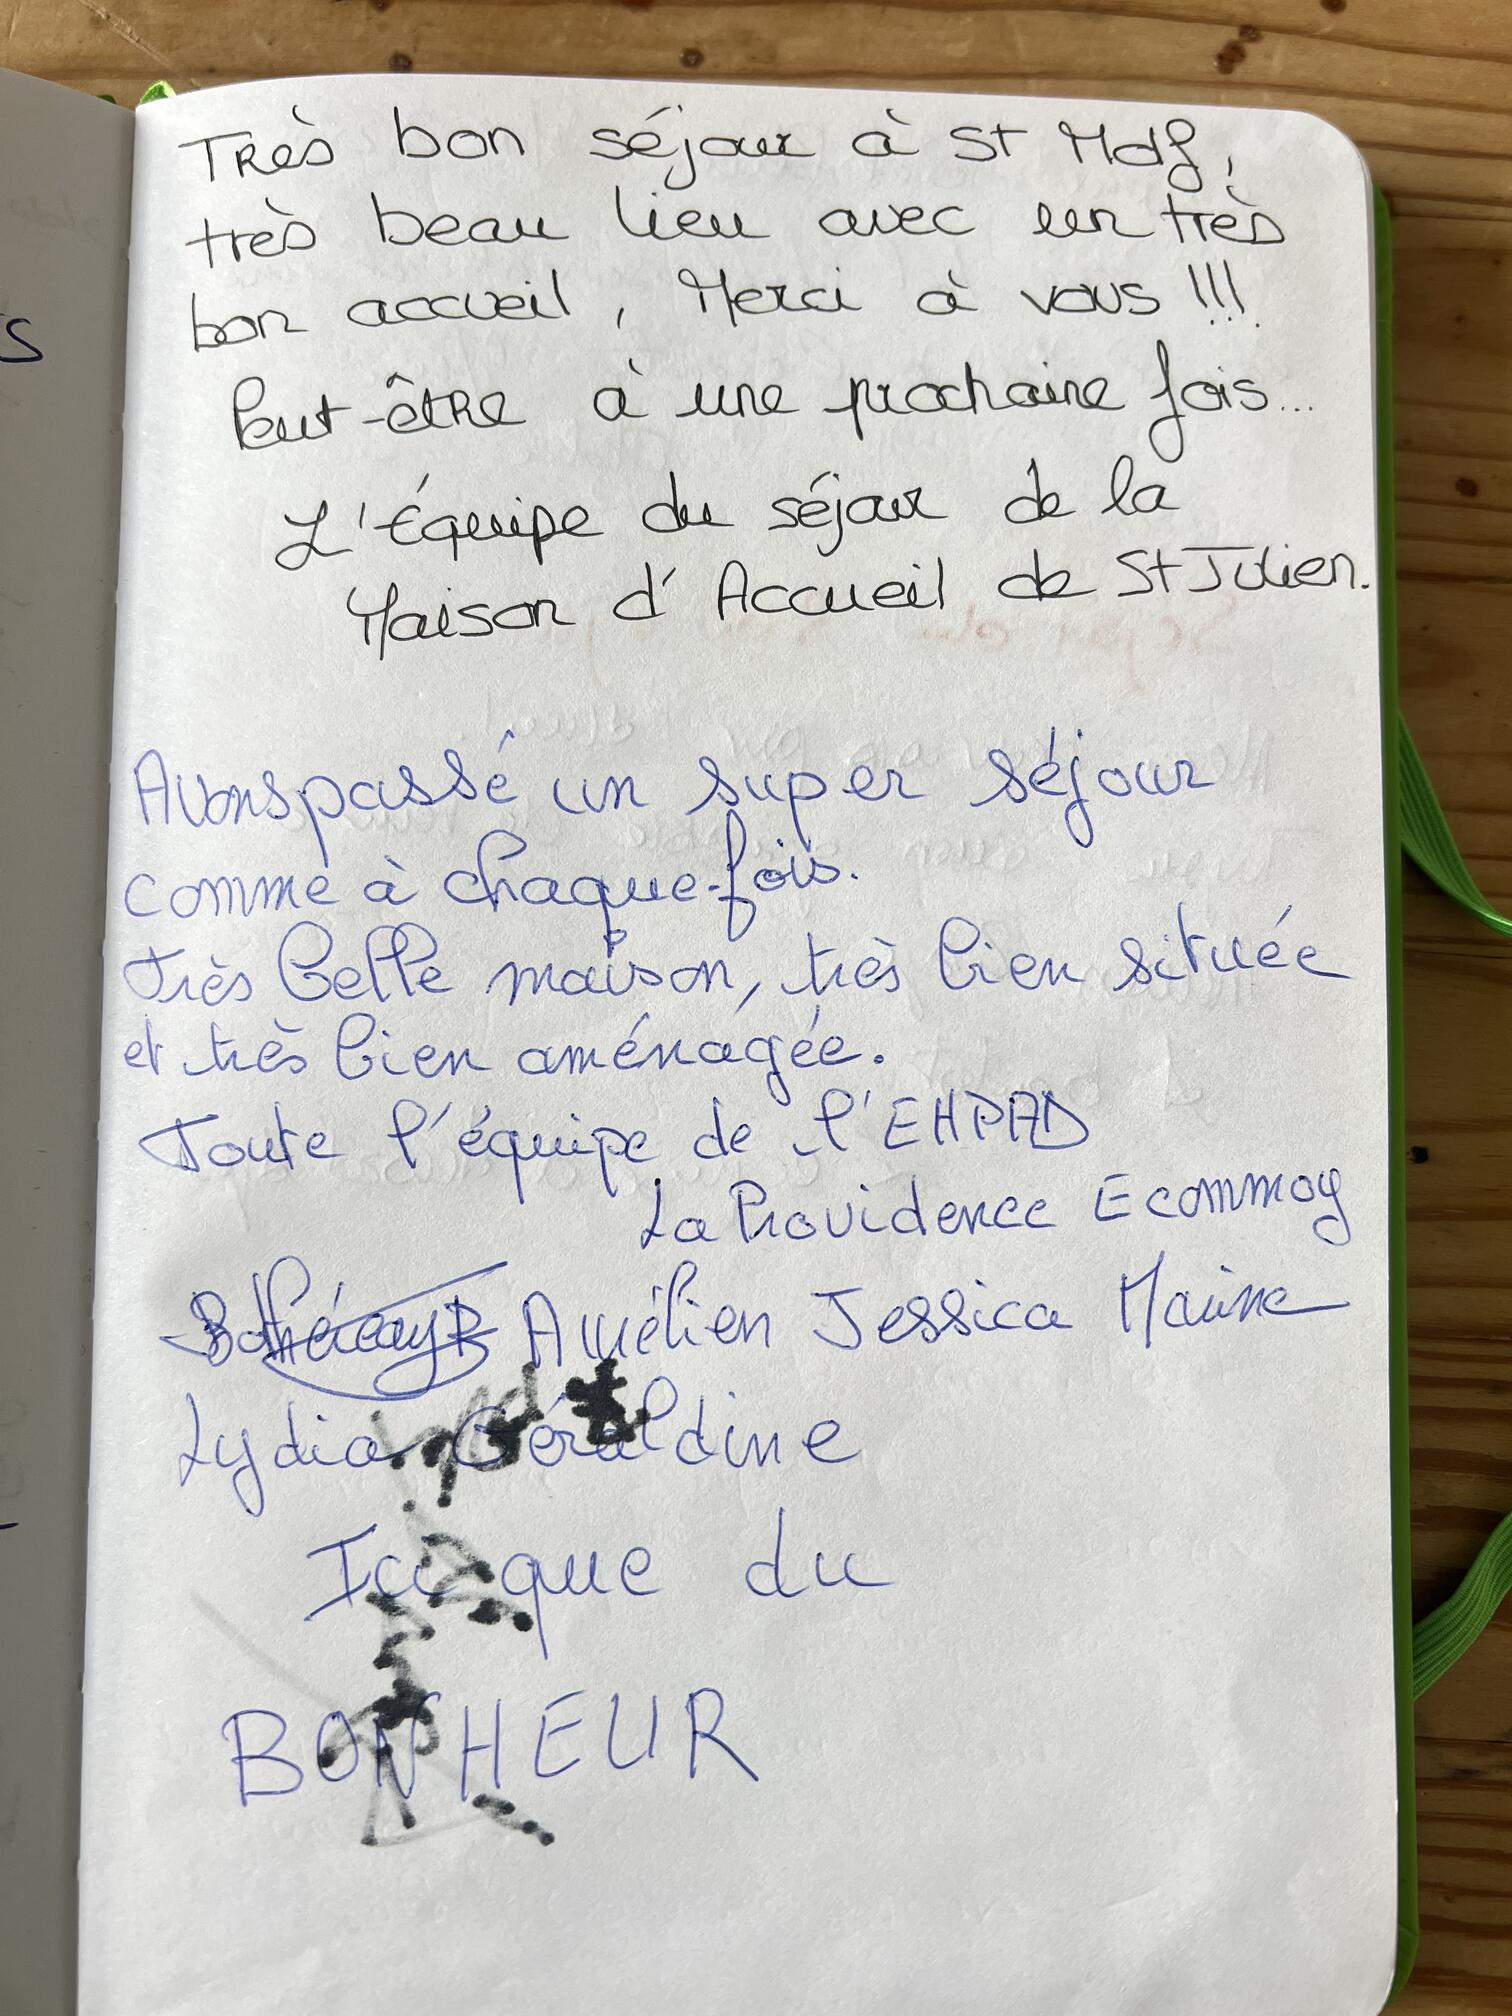 Très bon séjour à St Mdf,
très beau lieu avec un très
bon accueil, Merci à vous !!!
Peut-être à une prochaine fois...
L'Équipe du séjour de la
Maison d'Accueil de St Julien.
Avons passé un super séjour
comme à chaque fois.
Très belle maison, très bien située
et très bien aménagée.
Toute l'équipe de l'EHPAD
La Providence Ecommoy
Aurélien Jessica Marine
Lydia Géraldine
Ici que du
BONHEUR